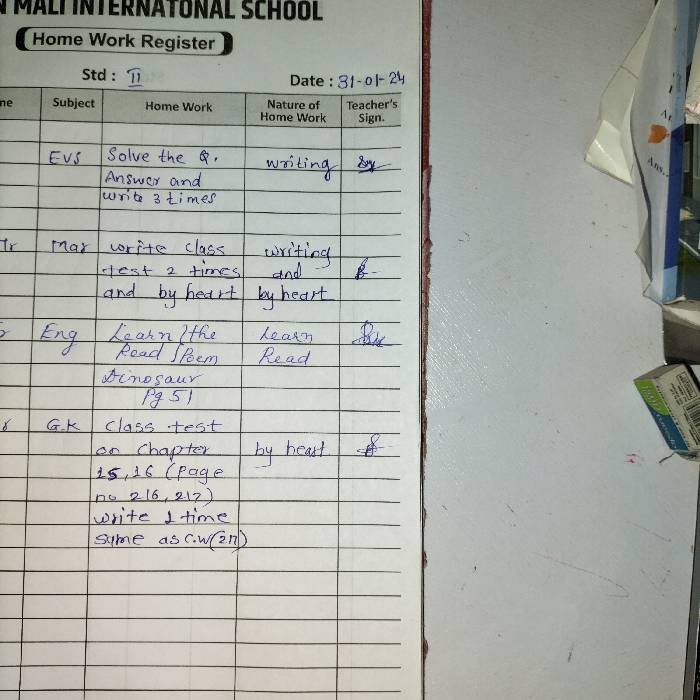 MALI INTERNATONAL SCHOOL
Home Work Register
Std : II
Date : 31-01-24
Subject Home Work Nature of Home Work Teacher's Sign.
EVS Solve the Q. writing
Answer and
write 3 times
Mar write class writing
test 2 times and
and by heart by heart
Eng Learn the Learn
Read Poem Read
Dinosaur
Pg 51
G.K Class test
on Chapter by heart
15, 16 (page
no 216, 217)
write 1 time
same as C.W